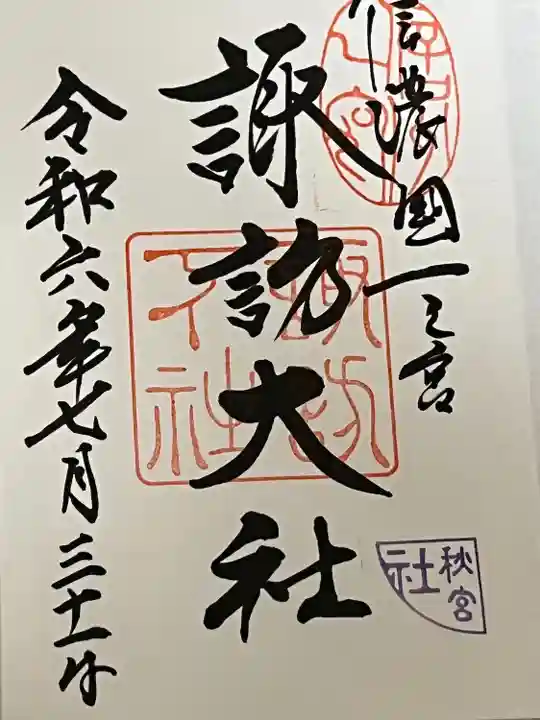 信濃國一之宮
諏訪大社
令和六年七月三十一日
諏訪
下社
秋宮
社